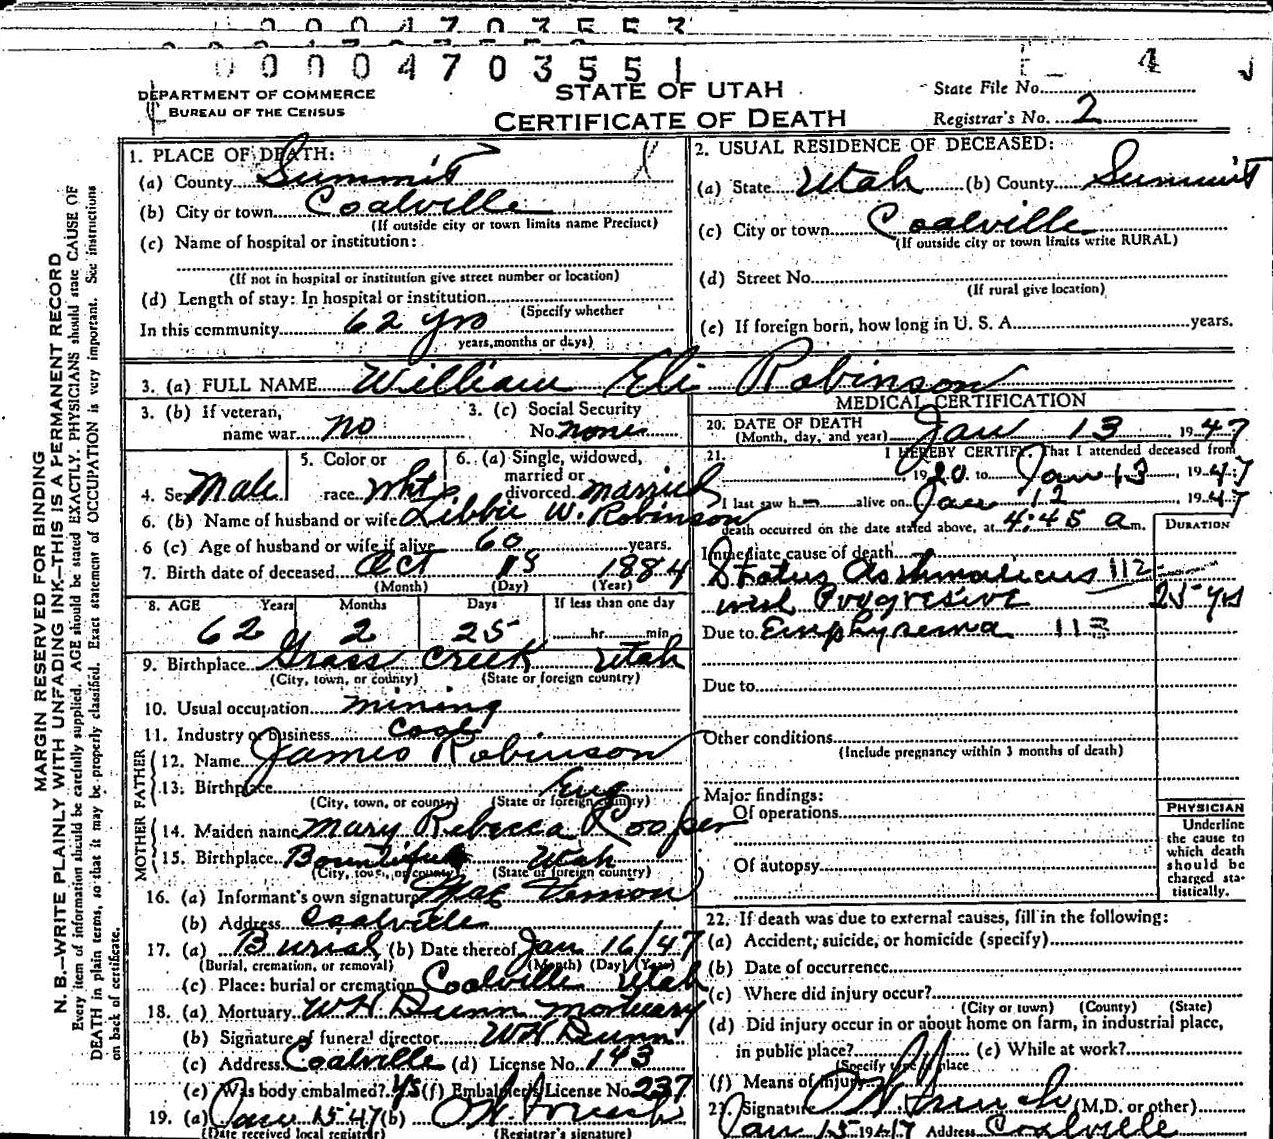 0 0 0 4 7 0 3 5 5 1
DEPARTMENT OF COMMERCE
BUREAU OF THE CENSUS
STATE OF UTAH
CERTIFICATE OF DEATH
State File No.
Registrar's No. 2
MARGIN RESERVED FOR BINDING
N. B.—WRITE PLAINLY WITH UNFADING INK—THIS IS A PERMANENT RECORD
Every item of information should be carefully supplied. AGE should be stated EXACTLY. PHYSICIANS should state CAUSE OF
DEATH in plain terms, so that it may be properly classified. Exact statement of OCCUPATION is very important. See instructions
on back of certificate.
1. PLACE OF DEATH:
(a) County Summit
(b) City or town Coalville
(If outside city or town limits name Precinct)
(c) Name of hospital or institution:
(If not in hospital or institution give street number or location)
(d) Length of stay: In hospital or institution
(Specify whether
In this community 62 yrs
years, months or days)
2. USUAL RESIDENCE OF DECEASED:
(a) State Utah (b) County Summit
(c) City or town Coalville
(If outside city or town limits write RURAL)
(d) Street No.
(If rural give location)
(e) If foreign born, how long in U. S. A. years.
3. (a) FULL NAME William Eli Robinson
3. (b) If veteran, name war no
3. (c) Social Security No. none
4. Sex Male
5. Color or race Wht
6. (a) Single, widowed, married or divorced married
6. (b) Name of husband or wife Libbie W. Robinson
6 (c) Age of husband or wife if alive 60 years.
7. Birth date of deceased Oct 18 1884
(Month) (Day) (Year)
8. AGE Years Months Days If less than one day
62 2 25 hr. min.
9. Birthplace Grass Creek Utah
(City, town, or county) (State or foreign country)
10. Usual occupation mining
11. Industry or business coal
FATHER
12. Name James Robinson
13. Birthplace Eng
(City, town, or county) (State or foreign country)
MOTHER
14. Maiden name Mary Rebecca Rooper
15. Birthplace Bountiful Utah
(City, town, or county) (State or foreign country)
16. (a) Informant's own signature Mae Vernon
(b) Address Coalville
17. (a) Burial (b) Date thereof Jan 16/47
(Burial, cremation, or removal) (Month) (Day) (Year)
(c) Place: burial or cremation Coalville Utah
18. (a) Mortuary WH Dunn Mortuary
(b) Signature of funeral director WH Dunn
(c) Address Coalville (d) License No. 143
(e) Was body embalmed? ys (f) Embalmer's License No. 237
19. (a) Jan 15 47 (b)
(Date received local registrar) (Registrar's signature)
MEDICAL CERTIFICATION
20. DATE OF DEATH
(Month, day, and year) Jan 13, 1947
21. I HEREBY CERTIFY, That I attended deceased from
1920 to Jan 13 1947
I last saw h alive on Jan 12 1947
death occurred on the date stated above, at 4:45 a m.
DURATION
Immediate cause of death
Status Asthmaticus 112
with Progresive 25 yrs
Due to Emphysema 113
Due to
Other conditions
(Include pregnancy within 3 months of death)
Major findings:
Of operations
Of autopsy
PHYSICIAN
Underline
the cause to
which death
should be
charged sta-
tistically.
22. If death was due to external causes, fill in the following:
(a) Accident, suicide, or homicide (specify)
(b) Date of occurrence
(c) Where did injury occur?
(City or town) (County) (State)
(d) Did injury occur in or about home on farm, in industrial place,
in public place? (e) While at work?
(Specify type of place
(f) Means of injury
Signature (M.D. or other)
Jan 15 1947 Address Coalville